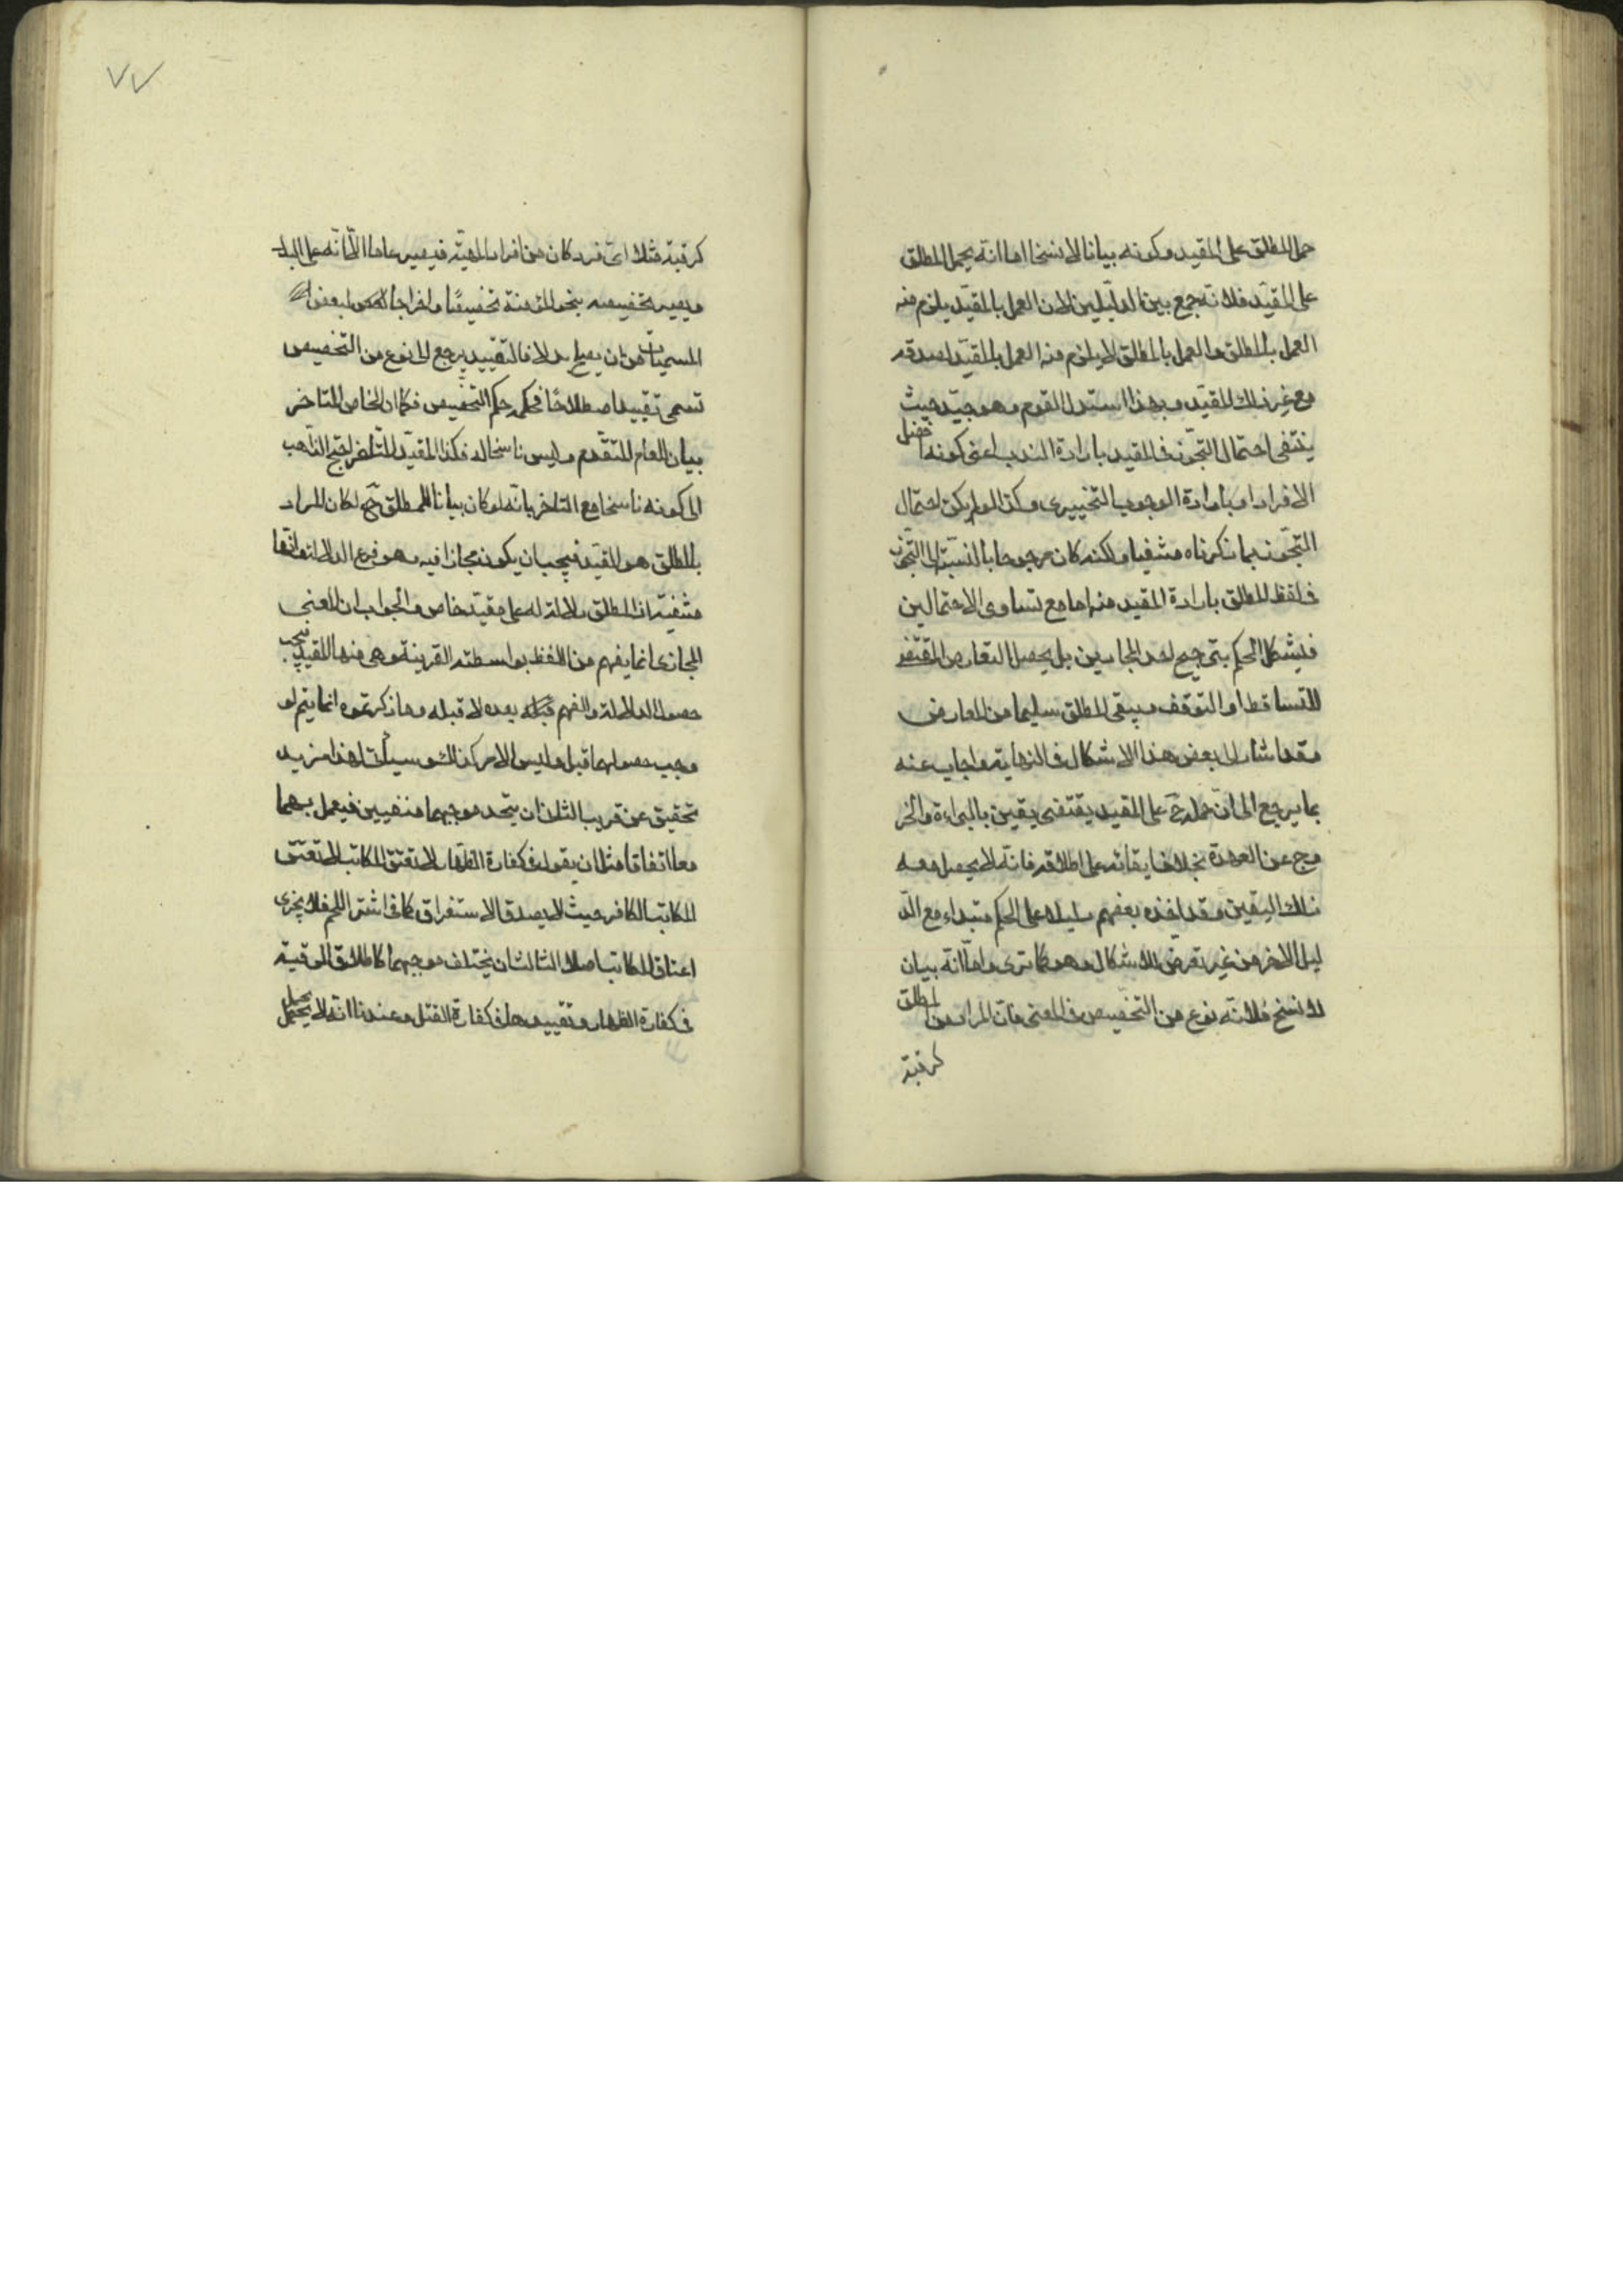 حمل المطلق على المقيد وكونه بيانا لا نسخا اما انه يحمل المطلق
على المقيد فلانه جمع بين الدليلين لان العمل بالمقيد يلزم منه
العمل بالمطلق والعمل بالمطلق لا يلزم منه العمل بالمقيد لصدقه
مع غير ذلك المقيد وبهذا استدل القوم وهو جيد حيث
ينتفى احتمال التجوز فى المقيد بارادة الندب اعنى كونه افضل
الافراد او بارادة الوجوب التخييرى وكذا لو لم يكن احتمال
التجوز بما ذكرناه منتفيا ولكنه كان مرجوحا بالنسبة الى التجوز
فى لفظ المطلق بارادة المقيد منه اما مع تساوى الاحتمالين
فيشكل الحكم بترجيح احد المجازين بل يحصل التعارض المقتضى
للتساقط او التوقف ويبقى المطلق سليما من المعارض
وقد اشار الى بعض هذا الاشكال فى النهاية واجاب عنه
بما يرجع الى ان حمله ح على المقيد يقتضى يقين بالبراءة والخر
وج عن العهدة بخلاف ابقائه على اطلاقه فانه لا يحصل معه
ذلك اليقين وقد اخذه بعضهم دليلا على الحكم مبتداء مع الد
ليل الاخر من غير تعرض للاشكال وهو كما ترى واما انه بيان
لا نسخ فلانه نوع من التخصيص فى المعنى فان المراد من المطلق
كرقبة
٧٧
كرقبة مثلا اى فرد كان من افراد المهية فيصير عاما الا انه على البدل
ويصير تخصيصه بنحو المؤمنة تخصيصا واخراجا لبعض
المسميات من ان يصلح بدلا فالتقييد يرجع الى نوع من التخصيص
تسمى تقييدا اصطلاحا فحكمه حكم التخصيص فكما ان الخاص المتاخر
بيان للعام المتقدم وليس ناسخا له فكذا المقيد المتاخر احتج الذاهب
الى كونه ناسخا مع التاخر بانه لو كان بيانا للمطلق ح لكان المراد
بالمطلق هو المقيد فيجب ان يكون مجازا فيه وهو فرع الدلالة وانها
منتفية اذ المطلق لا دلالة له على مقيد خاص والجواب ان المعنى
المجازى انما يفهم من اللفظ بواسطة القرينة وهى هنا المقيد فيجب
حصول الدلالة والفهم بعده لا قبله وما ذكرتموه انما يتم لو
وجب حصولهما قبل وليس الامر كذلك وسيأتى لهذا مزيد
تحقيق عن قريب الثانى ان يتحد موجبهما منفيين فيعمل بهما
معا اتفاقا مثل ان يقول فى كفارة الظهار لا تعتق المكاتب لا تعتق
المكاتب الكافر حيث لا يصدق الاستغراق كما فى اشتر اللحم فلا يجزى
اعتاق المكاتب اصلا الثالث ان يختلف موجبهما كاطلاق الرقبة
فى كفارة الظهار وتقييدها فى كفارة القتل وعندنا انه لا يحمل